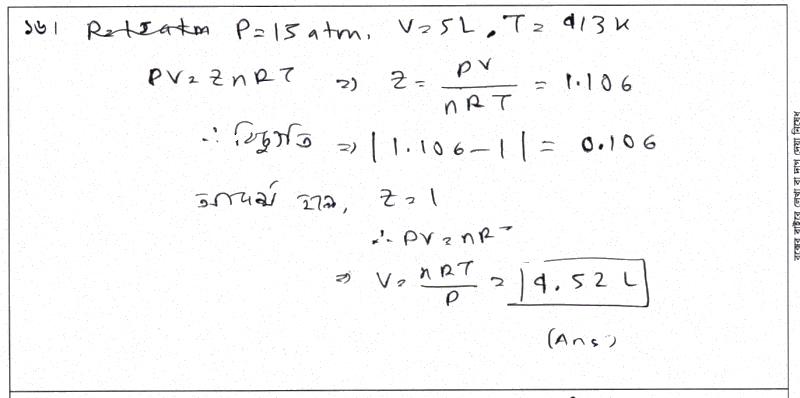 ১৬। R=15atm P=15 atm, V=5L, T= 413K
PV=ZnRT ⇒ Z= PV/nRT = 1.106
∴ বিচ্যুতি ⇒ |1.106-1| = 0.106
আদর্শ হলে, Z=1
∴ PV=nRT
⇒ V= nRT/P = 4.52 L
(Ans)
বক্সের বাইরে লেখা বা দাগ দেয়া নিষেধ